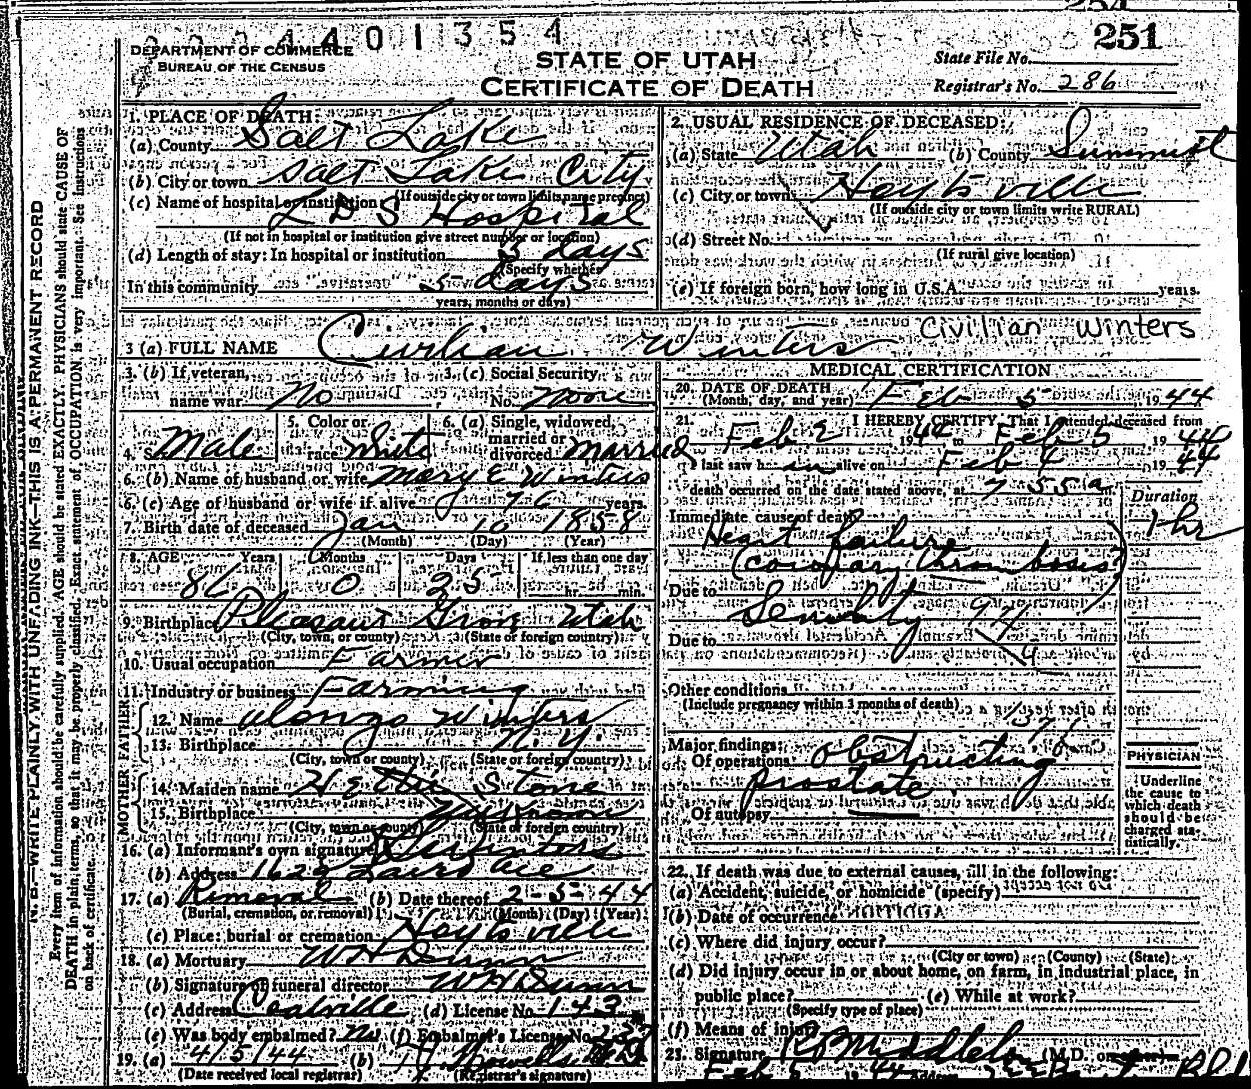 254
4 4 0 1 3 5 4
251
DEPARTMENT OF COMMERCE
BUREAU OF THE CENSUS
STATE OF UTAH
CERTIFICATE OF DEATH
State File No.
Registrar's No. 286
1. PLACE OF DEATH:
(a) County Salt Lake
(b) City or town Salt Lake City
(If outside city or town limits, name precinct)
(c) Name of hospital or institution L D S Hospital
(If not in hospital or institution give street number or location)
(d) Length of stay: In hospital or institution 3 days
(Specify whether
In this community 5 days
years, months or days)
2. USUAL RESIDENCE OF DECEASED:
(a) State Utah (b) County Summit
(c) City or town Hoytsville
(If outside city or town limits write RURAL)
(d) Street No.
(If rural give location)
(e) If foreign born, how long in U.S.A. years.
3 (a) FULL NAME Civilian Winters
Civilian Winters
3. (b) If veteran, name war No
3. (c) Social Security No. None
4. Sex Male
5. Color or race White
6. (a) Single, widowed, married or divorced married
6. (b) Name of husband or wife Mary E Winters
6. (c) Age of husband or wife if alive 76 years
7. Birth date of deceased Jan 10 1858
(Month) (Day) (Year)
8. AGE Years Months Days If less than one day
86 0 25 hr. min.
9. Birthplace Pleasant Grove Utah
(City, town, or county) (State or foreign country)
10. Usual occupation Farmer
11. Industry or business Farming
FATHER
12. Name Alonzo Winters
13. Birthplace N. Y.
(City, town or county) (State or foreign country)
MOTHER
14. Maiden name Hettie Stone
15. Birthplace
(City, town or county) (State or foreign country)
16. (a) Informant's own signature
(b) Address 1629 Laird Ave
17. (a) Removal (b) Date thereof 2-5-44
(Burial, cremation, or removal) (Month) (Day) (Year)
(c) Place: burial or cremation Hoytsville
18. (a) Mortuary W H Dunn
(b) Signature of funeral director W H Dunn
(c) Address Coalville (d) License No. 143
(e) Was body embalmed? (f) Embalmer's License No.
19. (a) 4/5/44 (b)
(Date received local registrar) (Registrar's signature)
MEDICAL CERTIFICATION
20. DATE OF DEATH
(Month, day, and year) Feb 5 1944
21. I HEREBY CERTIFY, That I attended deceased from
Feb 2 1944 to Feb 5 1944
I last saw him alive on Feb 4 1944
death occurred on the date stated above, at 7 55 a m.
Duration
Immediate cause of death 1 hr
Heart failure
(coronary thrombosis?)
Due to Senility
Due to
94
Other conditions
(Include pregnancy within 3 months of death)
137
Major findings:
Of operations obstructing
prostate
Of autopsy
PHYSICIAN
Underline the cause to which death should be charged statistically.
22. If death was due to external causes, fill in the following:
(a) Accident, suicide, or homicide (specify)
(b) Date of occurrence
(c) Where did injury occur?
(City or town) (County) (State)
(d) Did injury occur in or about home, on farm, in industrial place, in
public place? (e) While at work?
(Specify type of place)
(f) Means of injury
23. Signature R P Middleton (M.D. or other)
N. B.—WRITE PLAINLY WITH UNFADING INK—THIS IS A PERMANENT RECORD
Every item of information should be carefully supplied. AGE should be stated EXACTLY. PHYSICIANS should state CAUSE OF
DEATH in plain terms, so that it may be properly classified. Exact statement of OCCUPATION is very important. See instructions
on back of certificate.